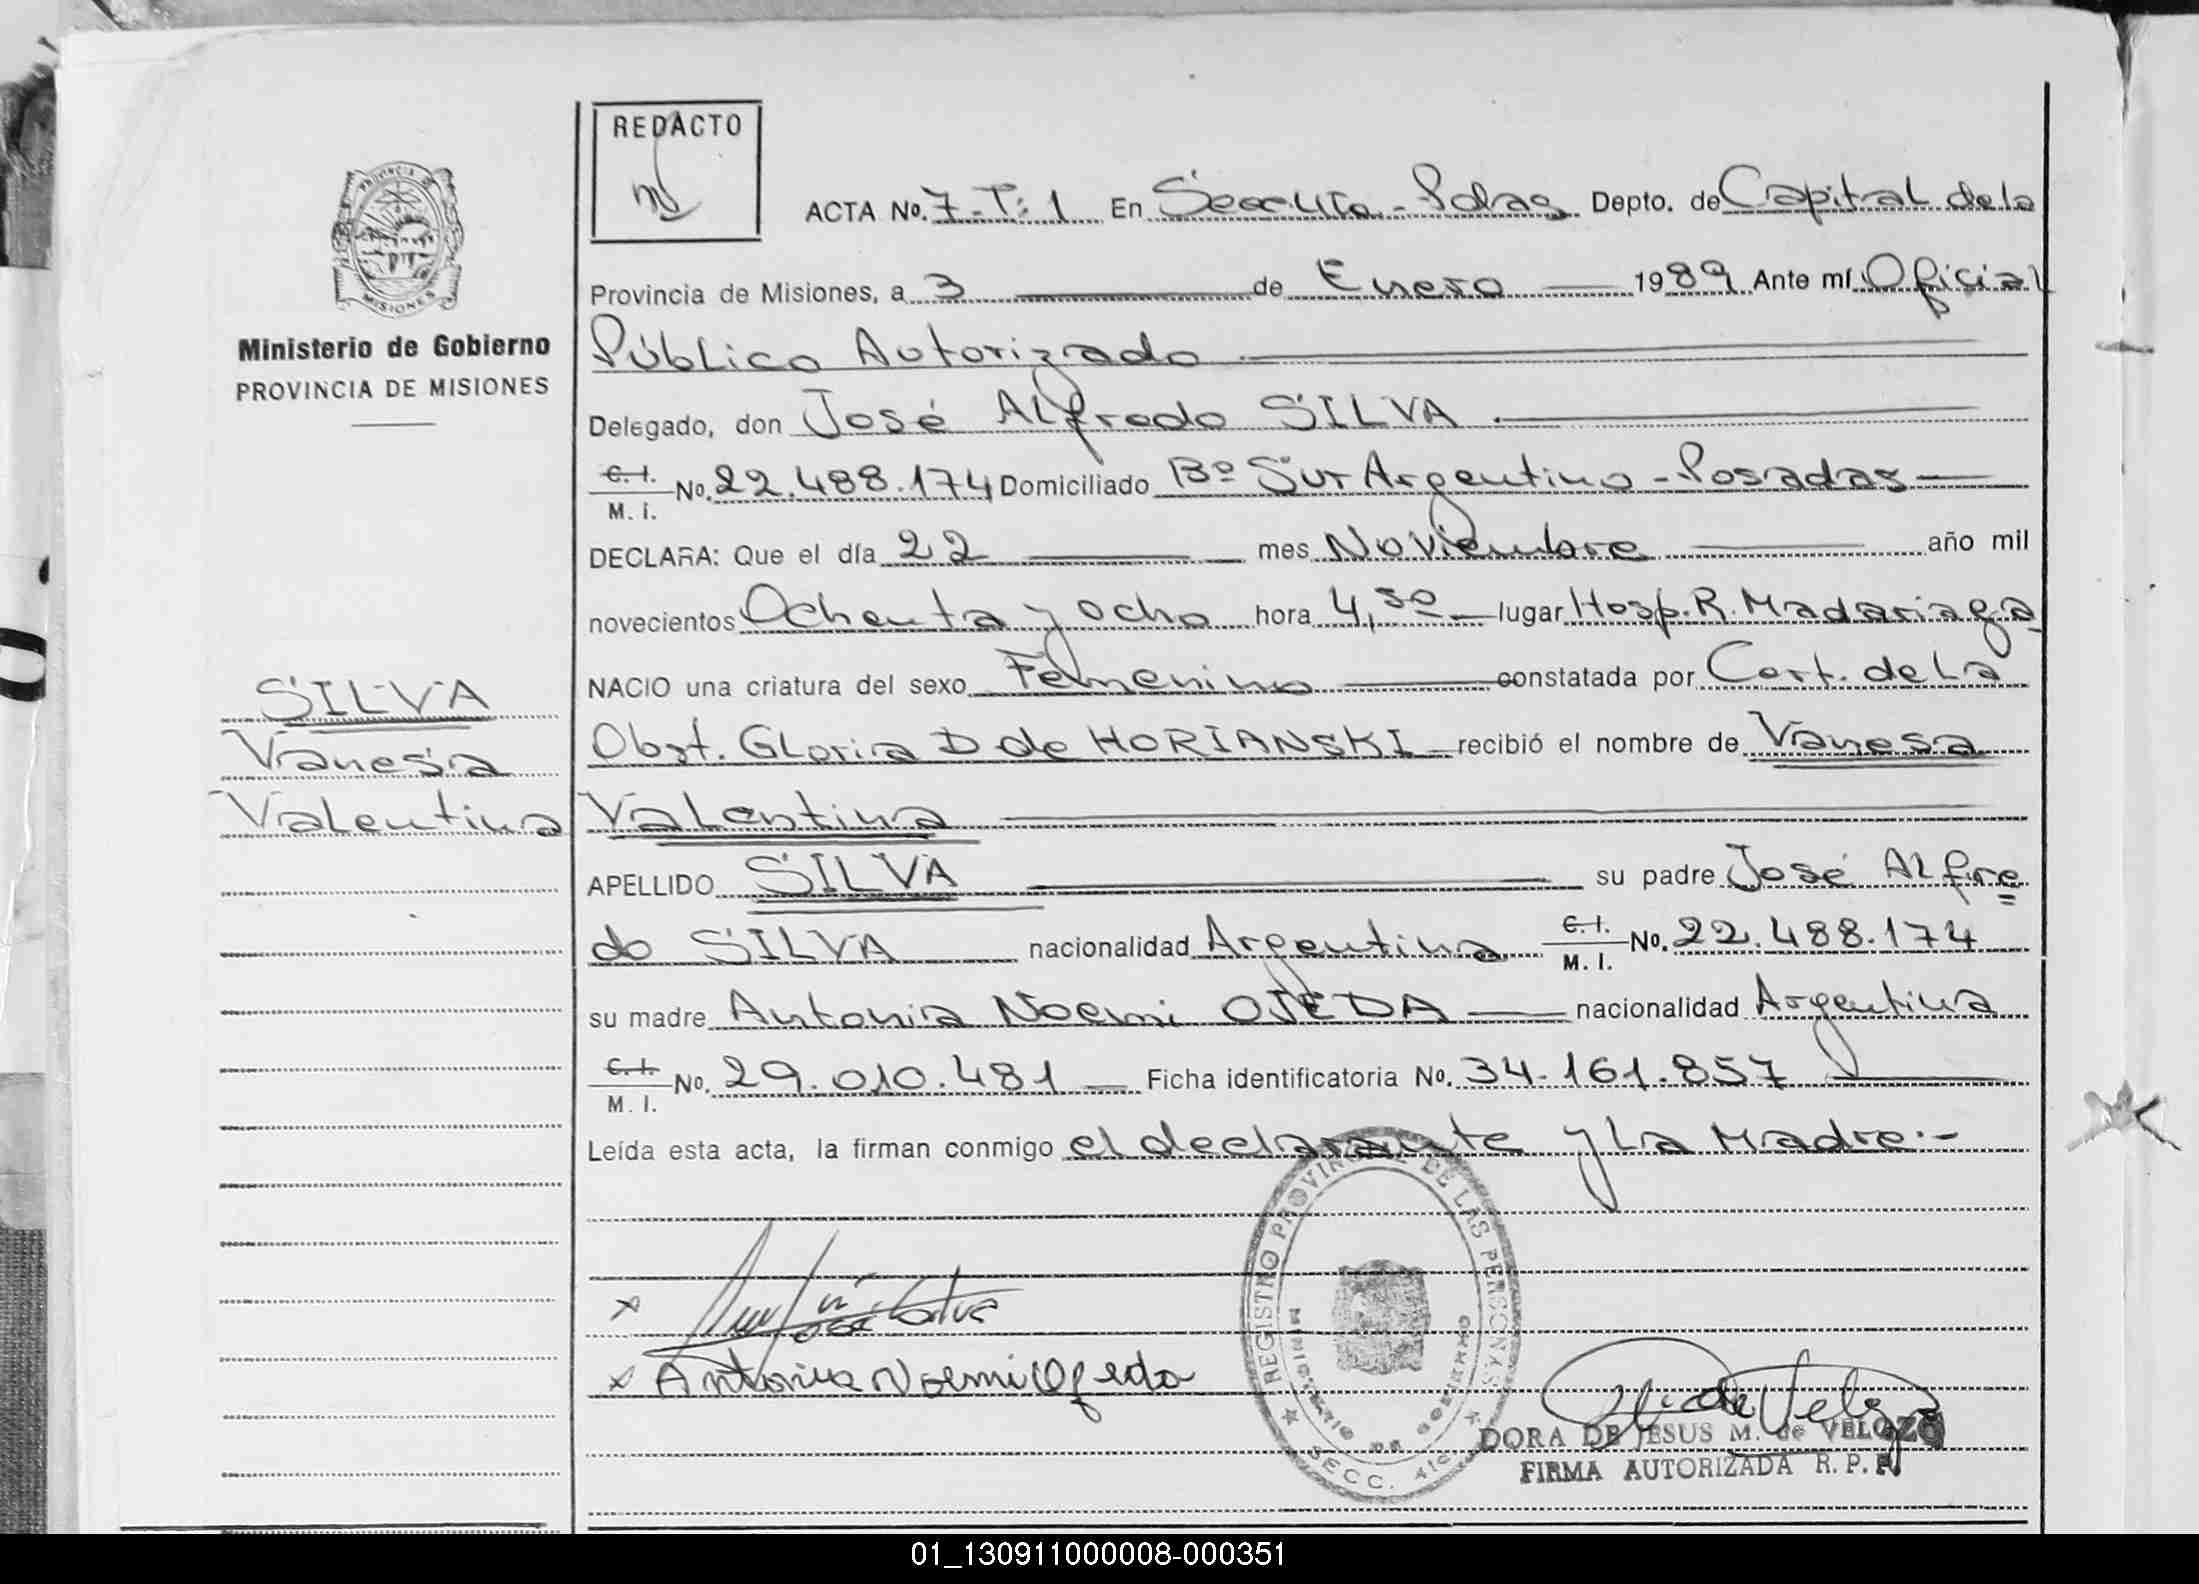 REDACTO
ACTA No. 7-T: 1 En Secc. 4ta - Pdas Depto. de Capital de la
Provincia de Misiones, a 3 de Enero 1989 Ante mí Oficial
Público Autorizado
Delegado, don José ALfredo SILVA
C. I. M. I. No. 22.488.174 Domiciliado Bº Sur Argentino - Posadas
DECLARA: Que el día 22 mes Noviembre año mil
novecientos Ochenta y ocho hora 4,30 lugar Hosp. R. Madariaga
NACIO una criatura del sexo Femenino constatada por Cert. de La
Obst. GLoria D de HORIANSKI recibió el nombre de Vanesa
VaLentina
APELLIDO SILVA su padre José ALfre
do SILVA nacionalidad Argentina C. I. M. I. No. 22.488.174
su madre Antonia Noemi OJEDA nacionalidad Argentina
C. I. M. I. No. 29.010.481 Ficha identificatoria No. 34.161.857
Leída esta acta, la firman conmigo el declarante y La Madre.-
PROVINCIA DE MISIONES
Ministerio de Gobierno
PROVINCIA DE MISIONES
SILVA
Vanesa
VaLentina
x José Silva
x Antonia Noemi Ojeda
REGISTRO PROVINCIAL DE LAS PERSONAS
MINISTERIO DE GOBIERNO
SECC. 4ta
DORA DE JESUS M. de VELOZO
FIRMA AUTORIZADA R. P. P.
01_130911000008-000351